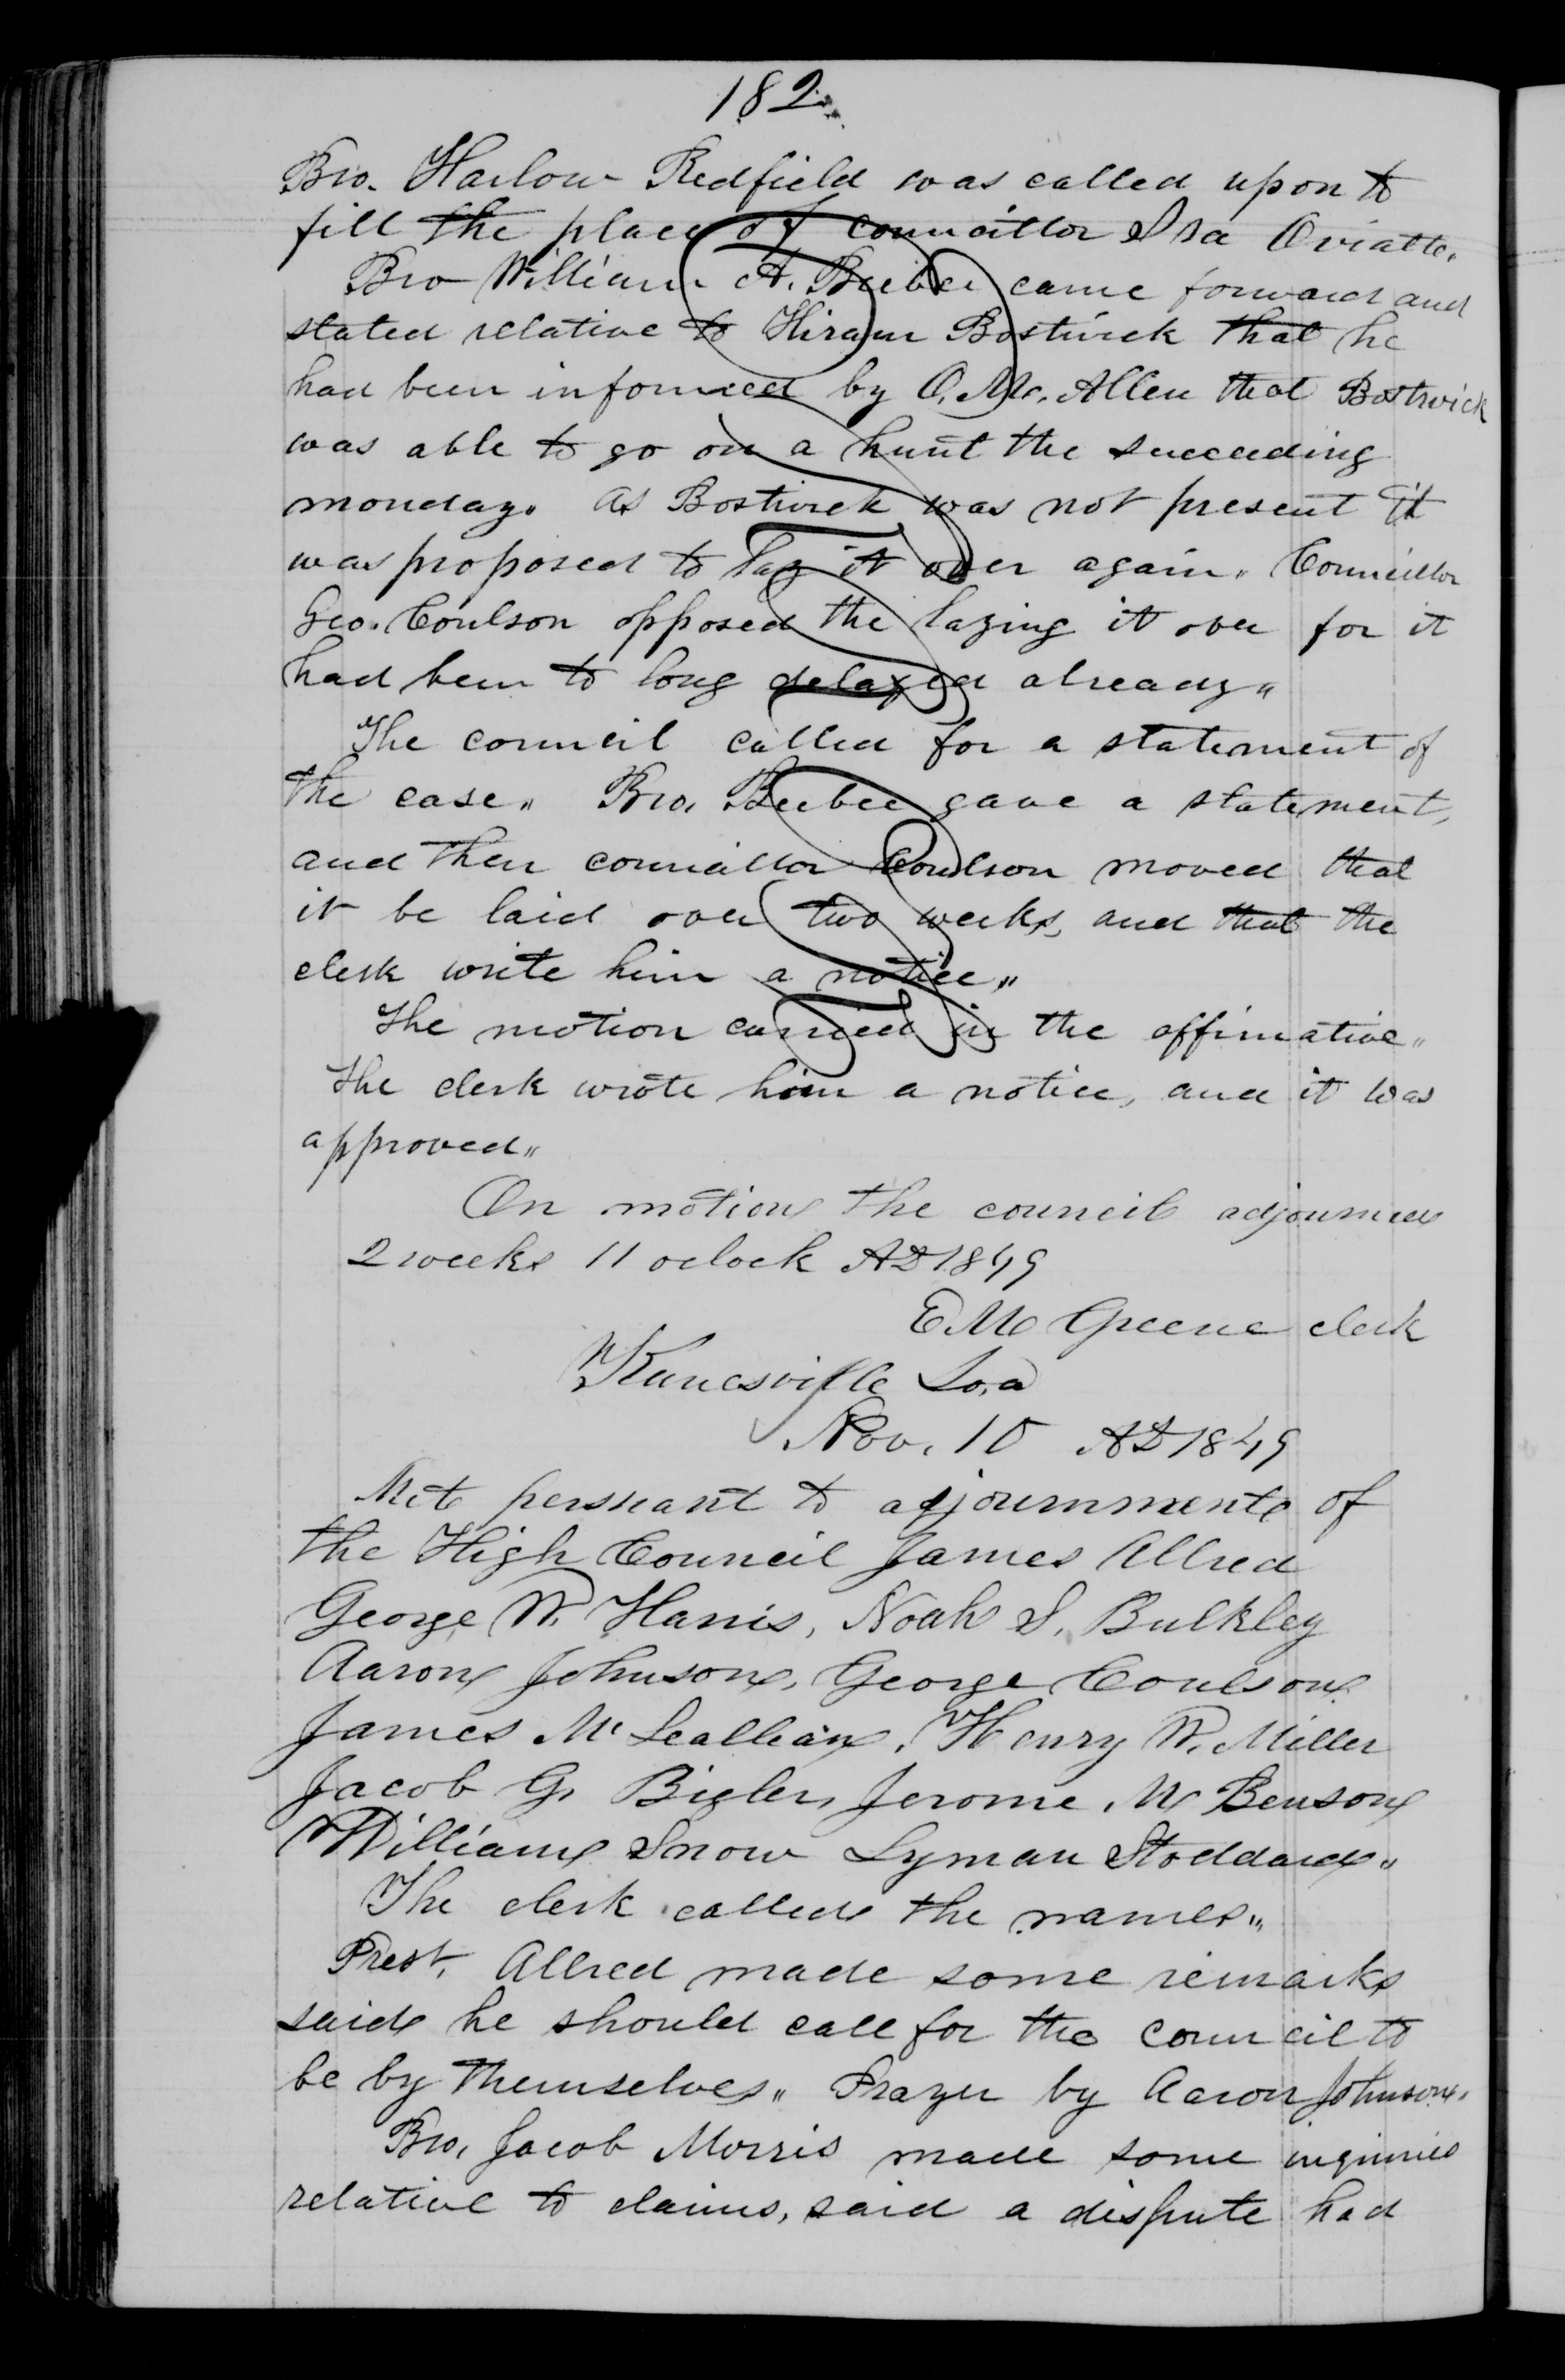 182
Bro. Harlow Redfield was called upon to
fill the place of councillor Ira Oviatte.
Bro William A. Beebee came forward and
stated relative to Hiram Bostwick that he
had been informed by O. M. Allen that Bostwick
was able to go on a hunt the succeeding
monday. As Bostwick was not present it
was proposed to lay it over again. Councillor
Geo. Coulson opposed the laying it over for it
had been to long delayed already"
The council called for a statement of
the case" Bro, Beebee gave a statement,
and then councillor Coulson moved that
it be laid over two weeks, and that the
clerk write him a notice"
The motion carried in the affirmative"
The clerk wrote him a notice, and it was
approved"
On motion the council adjourned
2 weeks 11 oclock AD 1849
E M Greene clerk
Kanesville Io,a
Nov. 10 AD 1849
Met persuant to adjournment of
the High Council James Allred
George W. Harris, Noah S. Bulkley
Aaron Johnson, George Coulson
James McLeallean, Henry W. Miller
Jacob G. Bigler, Jerome M Benson
William Snow Lyman Stoddard"
The clerk called the names"
Prest, Allred made some remarks
said he should call for the council to
be by themselves" Prayer by Aaron Johnson"
Bro, Jacob Morris made some inquiries
relative to claims, said a dispute had